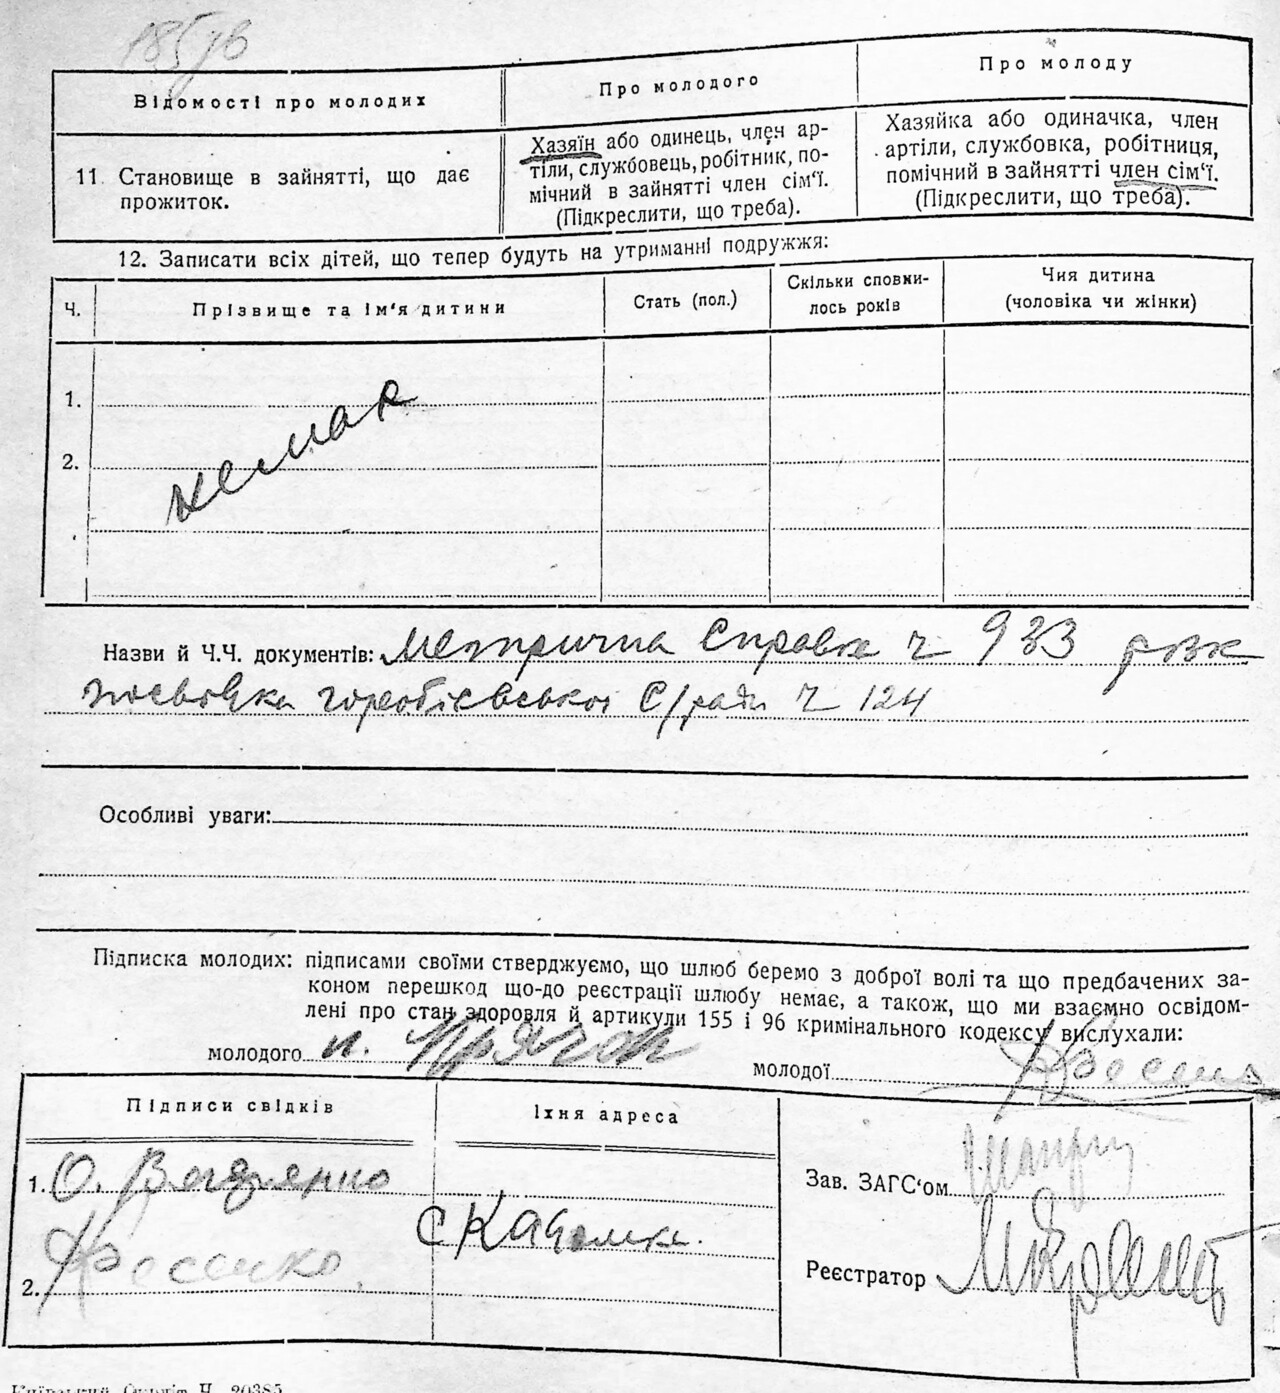 Відомості про молодих
Про молодого
Про молоду
11. Становище в зайнятті, що дає
прожиток.
Хазяїн або одинець, член ар-
тіли, службовець, робітник, по-
мічний в зайнятті член сім'ї.
(Підкреслити, що треба).
Хазяйка або одиначка, член
артіли, службовка, робітниця,
помічний в зайнятті член сім'ї.
(Підкреслити, що треба).
12. Записати всіх дітей, що тепер будуть на утриманні подружжя:
Ч.
Прізвище та ім'я дитини
Стать (пол.)
Скільки сповни-
лось років
Чия дитина
(чоловіка чи жінки)
1.
2.
немає
Назви й Ч.Ч. документів: Метрична справка ч 933
Горобієвської С/ради ч 124
Особливі уваги:
Підписка молодих: підписами своїми стверджуємо, що шлюб беремо з доброї волі та що предбачених за-
коном перешкод що-до реєстрації шлюбу немає, а також, що ми взаємно освідом-
лені про стан здоровля й артикули 155 і 96 кримінального кодексу вислухали:
молодого
молодої
Підписи свідків
Їхня адреса
1. О.
2.
Зав. ЗАГС'ом
Реєстратор
Ч. 20385